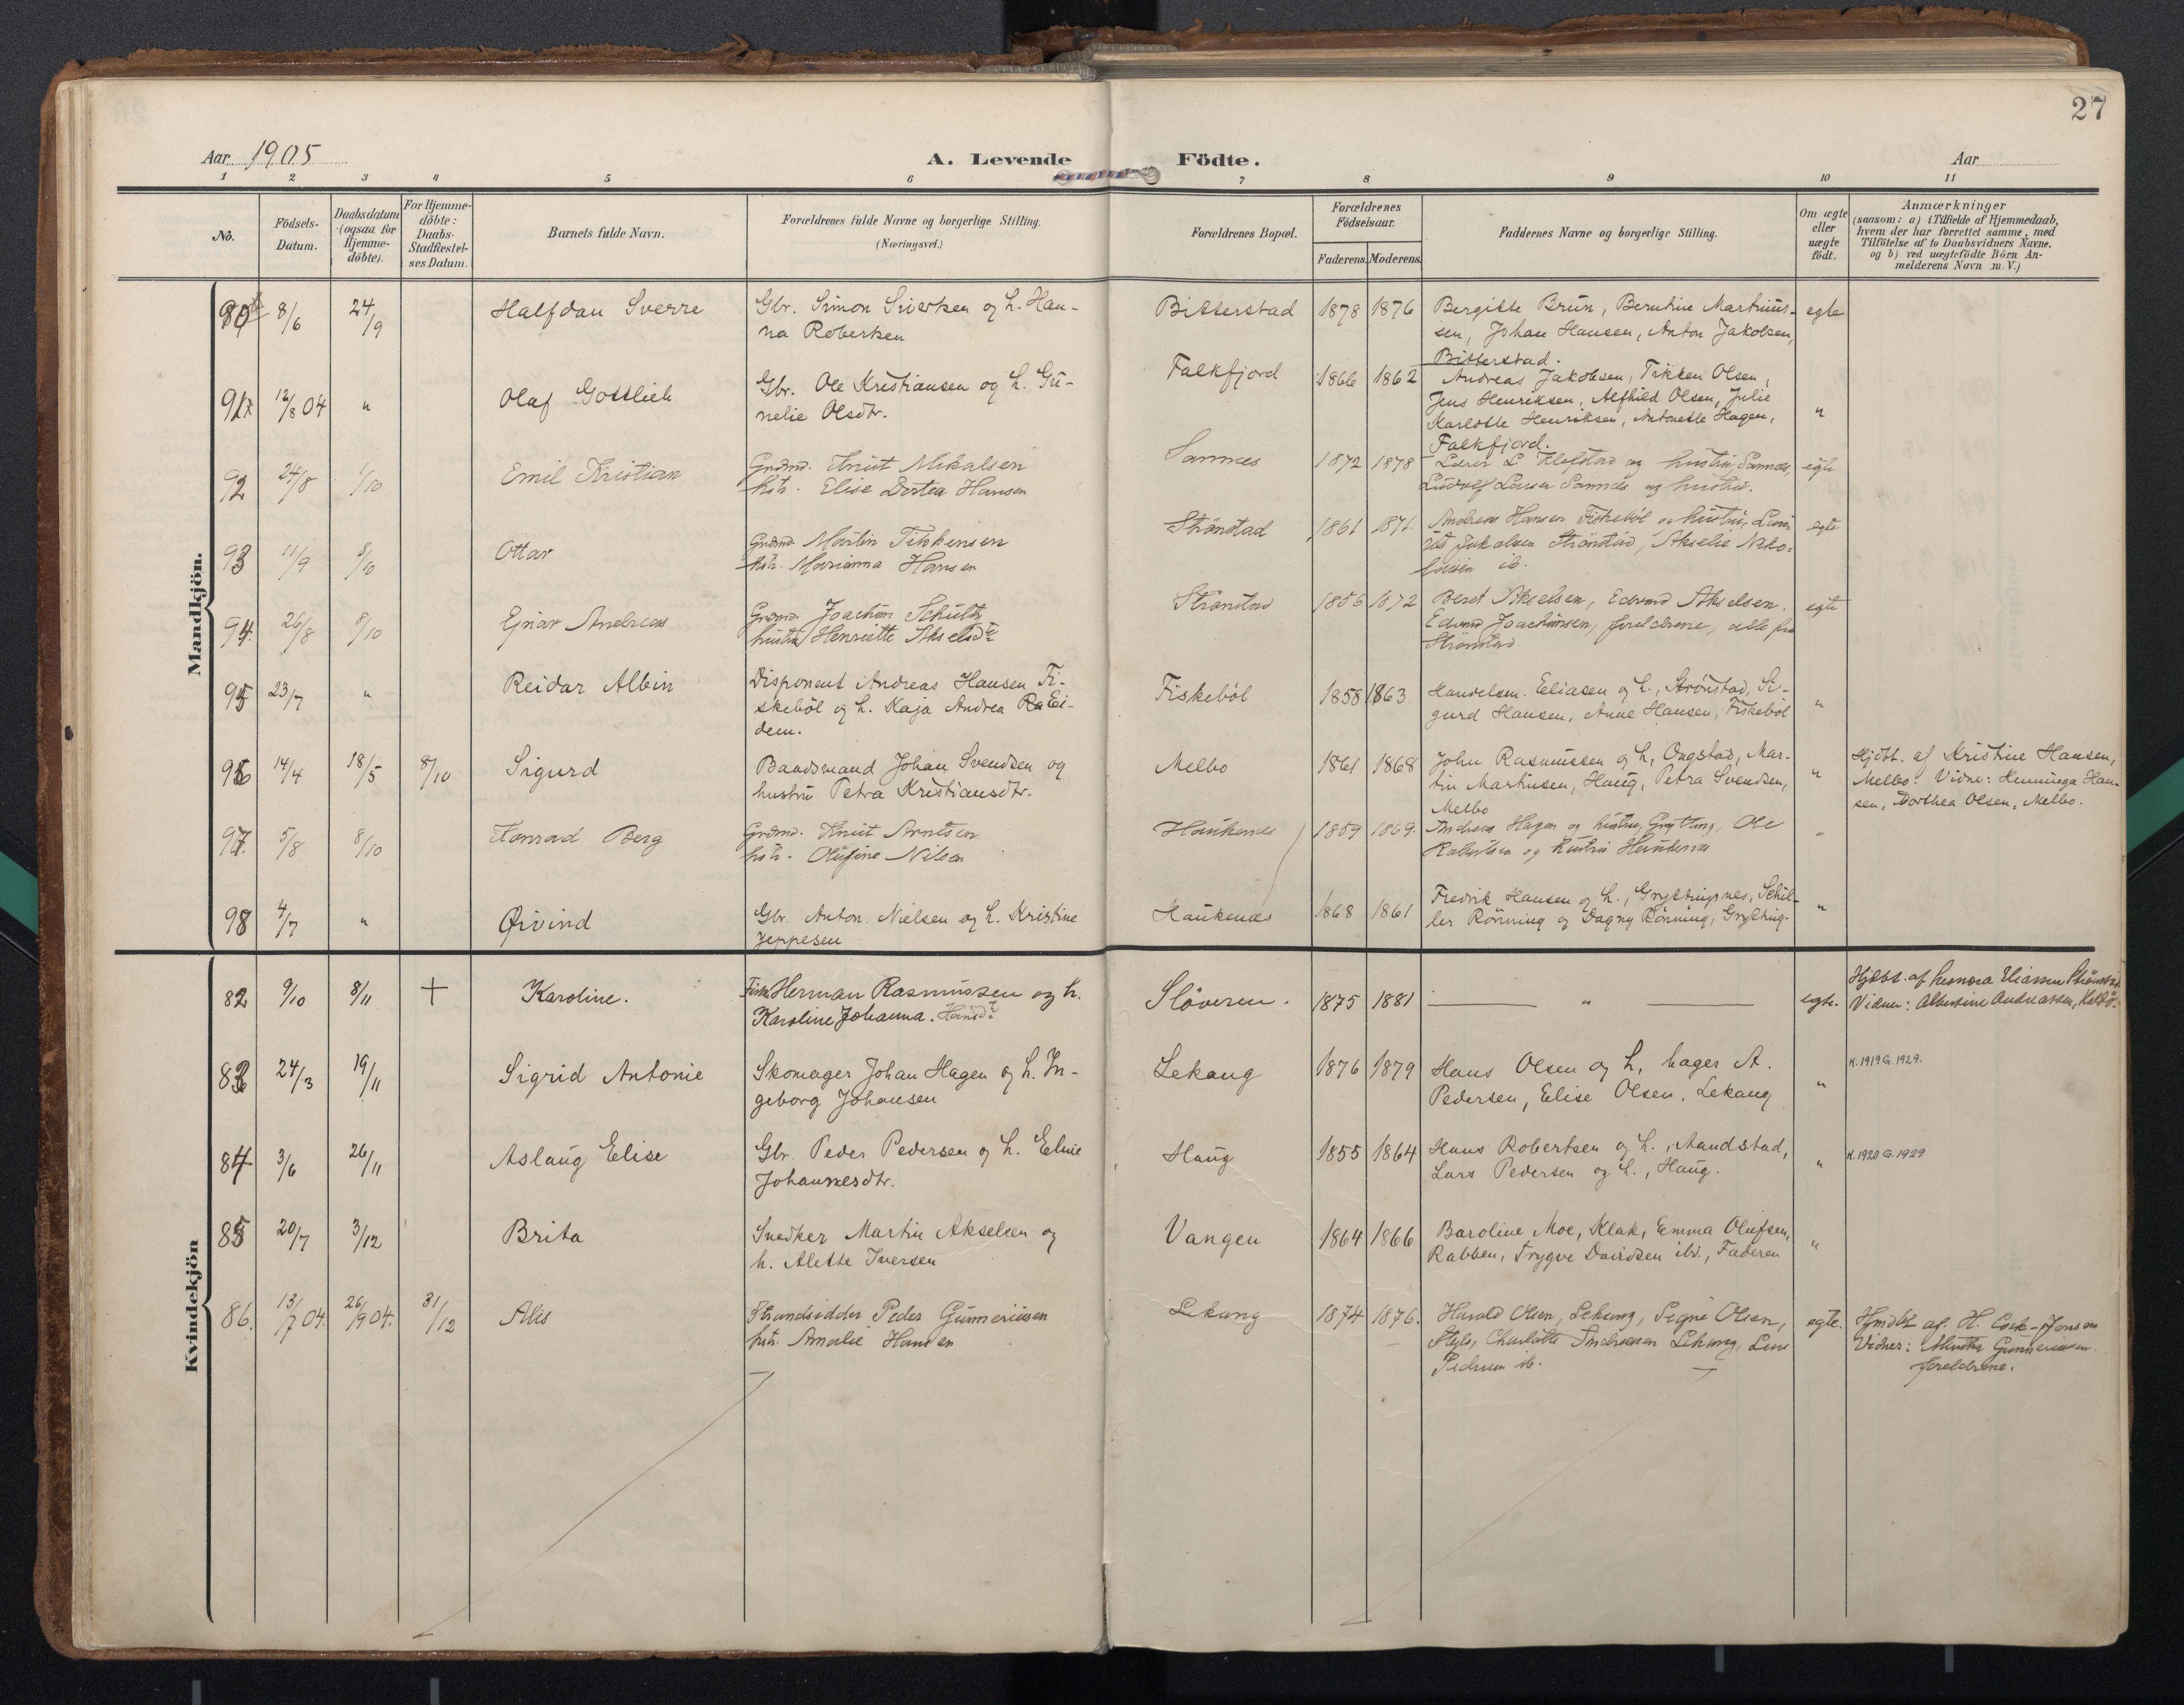 27
Aar 1905
A. Levende Födte.
Aar
1 2 3 4 5 6 7 8 9 10 11
No.
Födsels-Datum.
Daabsdatum (ogsaa for Hjemme-döbte).
For Hjemme-döbte: Daabs-Stadfæstel-ses Datum.
Barnets fulde Navn.
Forældrenes fulde Navne og borgerlige Stilling.
(Næringsvei.)
Forældrenes Bopæl.
Forældrenes Födselsaar.
Faderens. Moderens.
Faddernes Navne og borgerlige Stilling.
Om ægte eller uægte födt.
Anmærkninger
(saasom: a) i Tilfælde af Hjemmedaab,
hvem der har forrettet samme, med
Tilföielse af to Daabsvidners Navne,
og b) ved uægtefödte Börn An-
melderens Navn m. V.)
Mandkjön.
90 8/6 24/9 Halfdan Sverre
Gbr. Simon Sivertsen og h. Han-
na Robertsen
Bitterstad 1878 1876
Bergitte Brun, Berntine Martinus-
sen, Johan Hansen, Anton Jakobsen,
Bitterstad.
egte
91 12/8 04 " Olaf Gottlieb
Gbr. Ole Kristiansen og h. Gu-
nelie Olsdtr.
Falkfjord 1866 1862
Andreas Jakobsen, Tikken Olsen,
Jens Henriksen, Alfhild Olsen, Julie
Karlotte Henriksen, Antonette Hagen,
Falkfjord.
"
92 24/8 1/10 Emil Kristian
Grdmd. Knut Mikalsen
hstr. Elise Dortea Hansen
Sannes 1872 1878
Lærer L Klefstad og hustru, Sannes,
Ludvig Larsen Sannes og hustru.
egte
93 11/9 8/10 Ottar
Grdmd. Martin
hstr. Marianna Hansen
Strønstad 1861 1871
Andreas Hansen Fiskeböl og hustru,
Jakobsen Strønstad, Akselie Niko-
laisen ib.
egte
94. 26/8 8/10 Ejnar Andreas
Grdmd. Joachim Schultz
hustru Henriette Akselsdtr
Strønstad 1856 1872
Beret Akselsen, Edvard Akselsen.
Edvard Joachimsen, foreldrene, alle fra
Strønstad
egte
95 23/7 " Reidar Albin
Disponent Andreas Hansen Fi-
skeböl og h. Kaja Andrea Ei-
dem.
Fiskeböl 1858 1863
Handelsm. Eliasen og h., Strönstad, Si-
gurd Hansen, Anne Hansen, Fiskeböl
"
96 14/4 18/5 8/10 Sigurd
Baadsmand Johan Svendsen og
hustru Petra Kristiansdtr.
Melbo 1861 1868
John Rasmussen og h, Ongstad, Mar-
tin Martinsen, Haug, Petra Svendsen,
Melbo
"
Hjdbt. af Kristine Hansen,
Melbo. Vidne: Henninga Han-
sen, Dorthea Olsen, Melbo.
97. 5/8 8/10 Konrad Berg
Grdmd. Knut Arntsen
hstr. Olufine Nilsen
Haukenes 1859 1869.
Andreas Hagen og hustru, Grytting, Ole
Robertsen og hustru Haukenes
"
98 4/7 " Øivind
Gbr. Anton Nielsen og h. Kristine
Jeppesen
Haukenes 1868 1861
Fredrik Hansen og h., Gryttingnes, Schil-
ler Rönning og Dagny Rönning, Grytting.
"
Kvindekjön
82 9/10 8/11 + Karoline.
Fisk. Herman Rasmussen og h.
Karoline Johanna. Hansdtr
Slöveren. 1875 1881
— " —
egte.
Hjdbt. af Leonora Eliassen Strönstad
Vidner: Albertine Andreassen,
83 24/3 19/11 Sigrid Antonie
Skomager Johan Hagen og h. In-
geborg Johansen
Lekang 1876 1879
Hans Olsen og h, bager A.
Pedersen, Elise Olsen, Lekang
"
K. 1919 G. 1929.
84 3/6 26/11 Aslaug Elise
Gbr. Peder Pedersen og h. Eline
Johannesdtr.
Haug 1855 1864
Hans Robertsen og h., Sandstad,
Lars Pedersen og h., Haug.
"
K. 1920 G. 1929
85 20/7 3/12 Brita
Snedker Martin Akselsen og
h. Alette Iversen
Vangen 1864 1866
Baroline Moe, Klak, Emma Olufsen,
Rabben, Trygve Davidsen ibd., Faderen
"
86. 13/7 04. 26/9 04. 31/12 Alis
Strandsidder Peder Gunneriusen
hstr. Amalie Hansen
Lekang 1874 1876.
Harald Olsen, Lekang, Signe Olsen,
Charlotte Andreasen Lekang, Lene
Pedersen ib.
egte.
Hjmdbt af. H. Cock-Jensen
Vidner: Gunneriusen.
foreldrene.